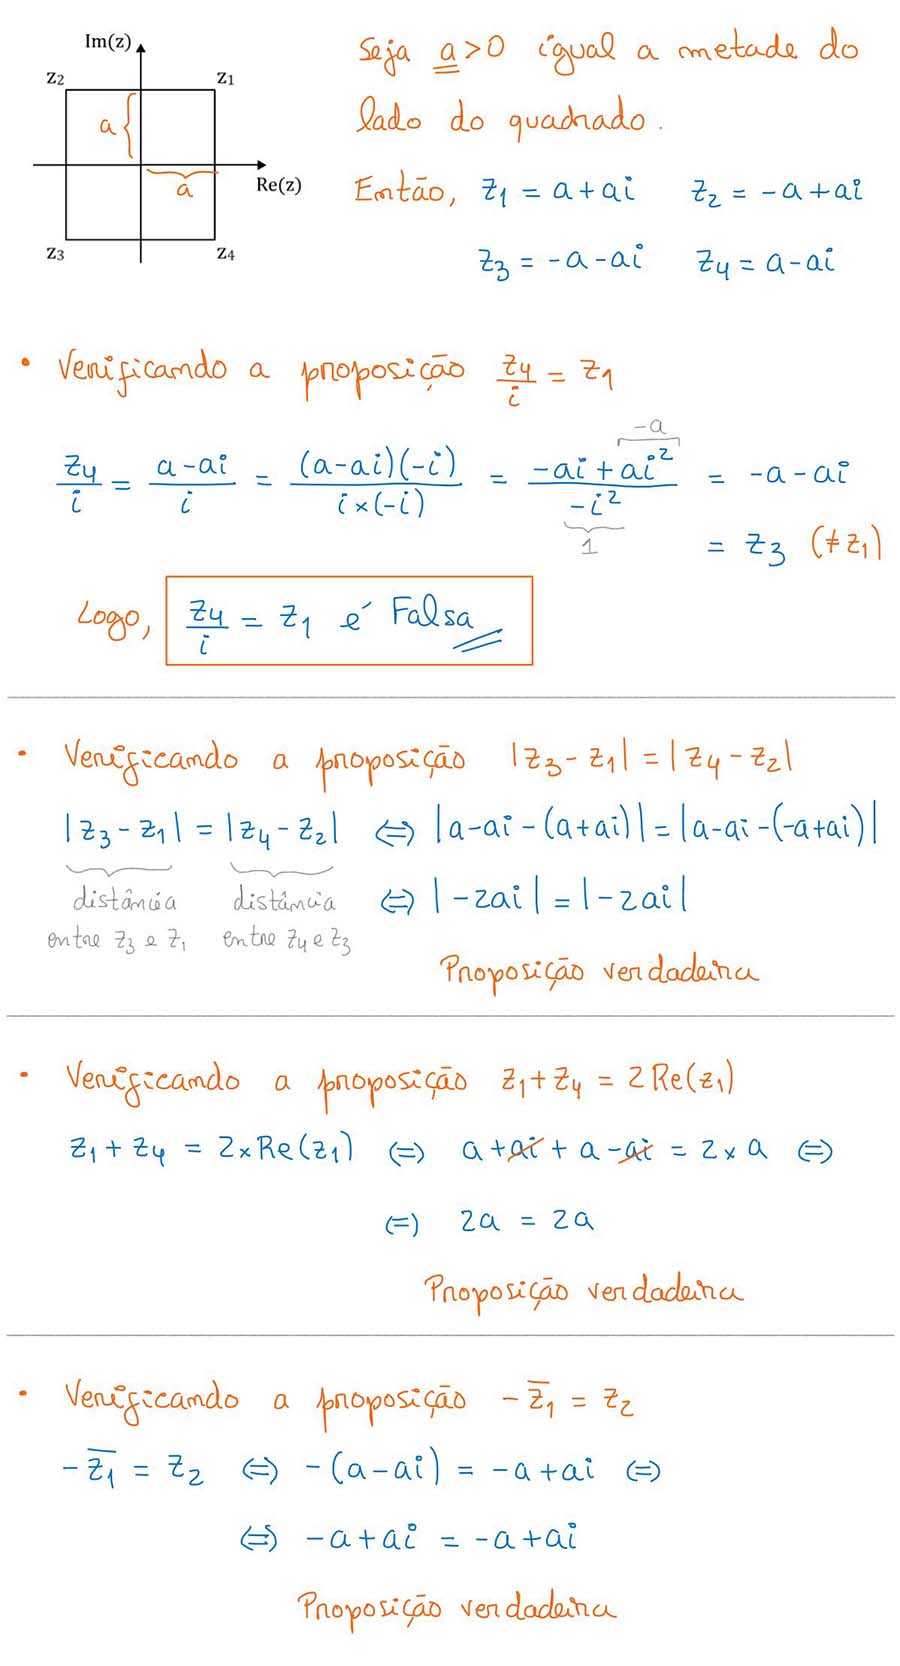 Im(z)
Z2 Z1
a
a
Re(z)
Z3 Z4
Seja a>0 igual a metade do
lado do quadrado.
Então, z₁ = a+ai z₂ = -a+ai
z₃ = -a-ai z₄ = a-ai
• Verificando a proposição z₄/i = z₁
-a
z₄/i = (a-ai)/i = (a-ai)(-i)/(i×(-i)) = (-ai+ai²)/(-i²) = -a-ai
1
= z₃ (≠z₁)
Logo, z₄/i = z₁ é Falsa
• Verificando a proposição |z₃-z₁| = |z₄-z₂|
|z₃-z₁| = |z₄-z₂| ⇔ |a-ai-(a+ai)| = |a-ai-(-a+ai)|
distância distância ⇔ |-2ai| = |-2ai|
entre z₃ e z₁ entre z₄ e z₃
Proposição verdadeira
• Verificando a proposição z₁+z₄ = 2Re(z₁)
z₁+z₄ = 2×Re(z₁) ⇔ a+ai+a-ai = 2×a ⇔
⇔ 2a = 2a
Proposição verdadeira
• Verificando a proposição -z̅₁ = z₂
-z̅₁ = z₂ ⇔ -(a-ai) = -a+ai ⇔
⇔ -a+ai = -a+ai
Proposição verdadeira